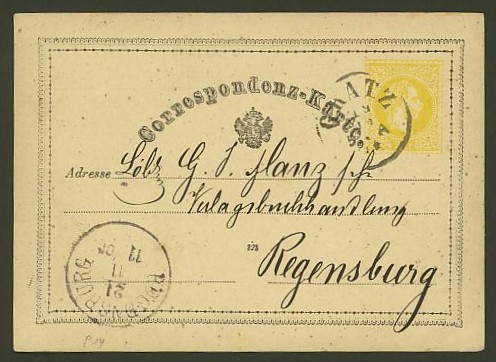 Correspondenz-Karte.
GRATZ
Adresse Löbl. G. J. Manz'sche
Verlagsbuchhandlung
in
Regensburg
REGENSBURG
21
11